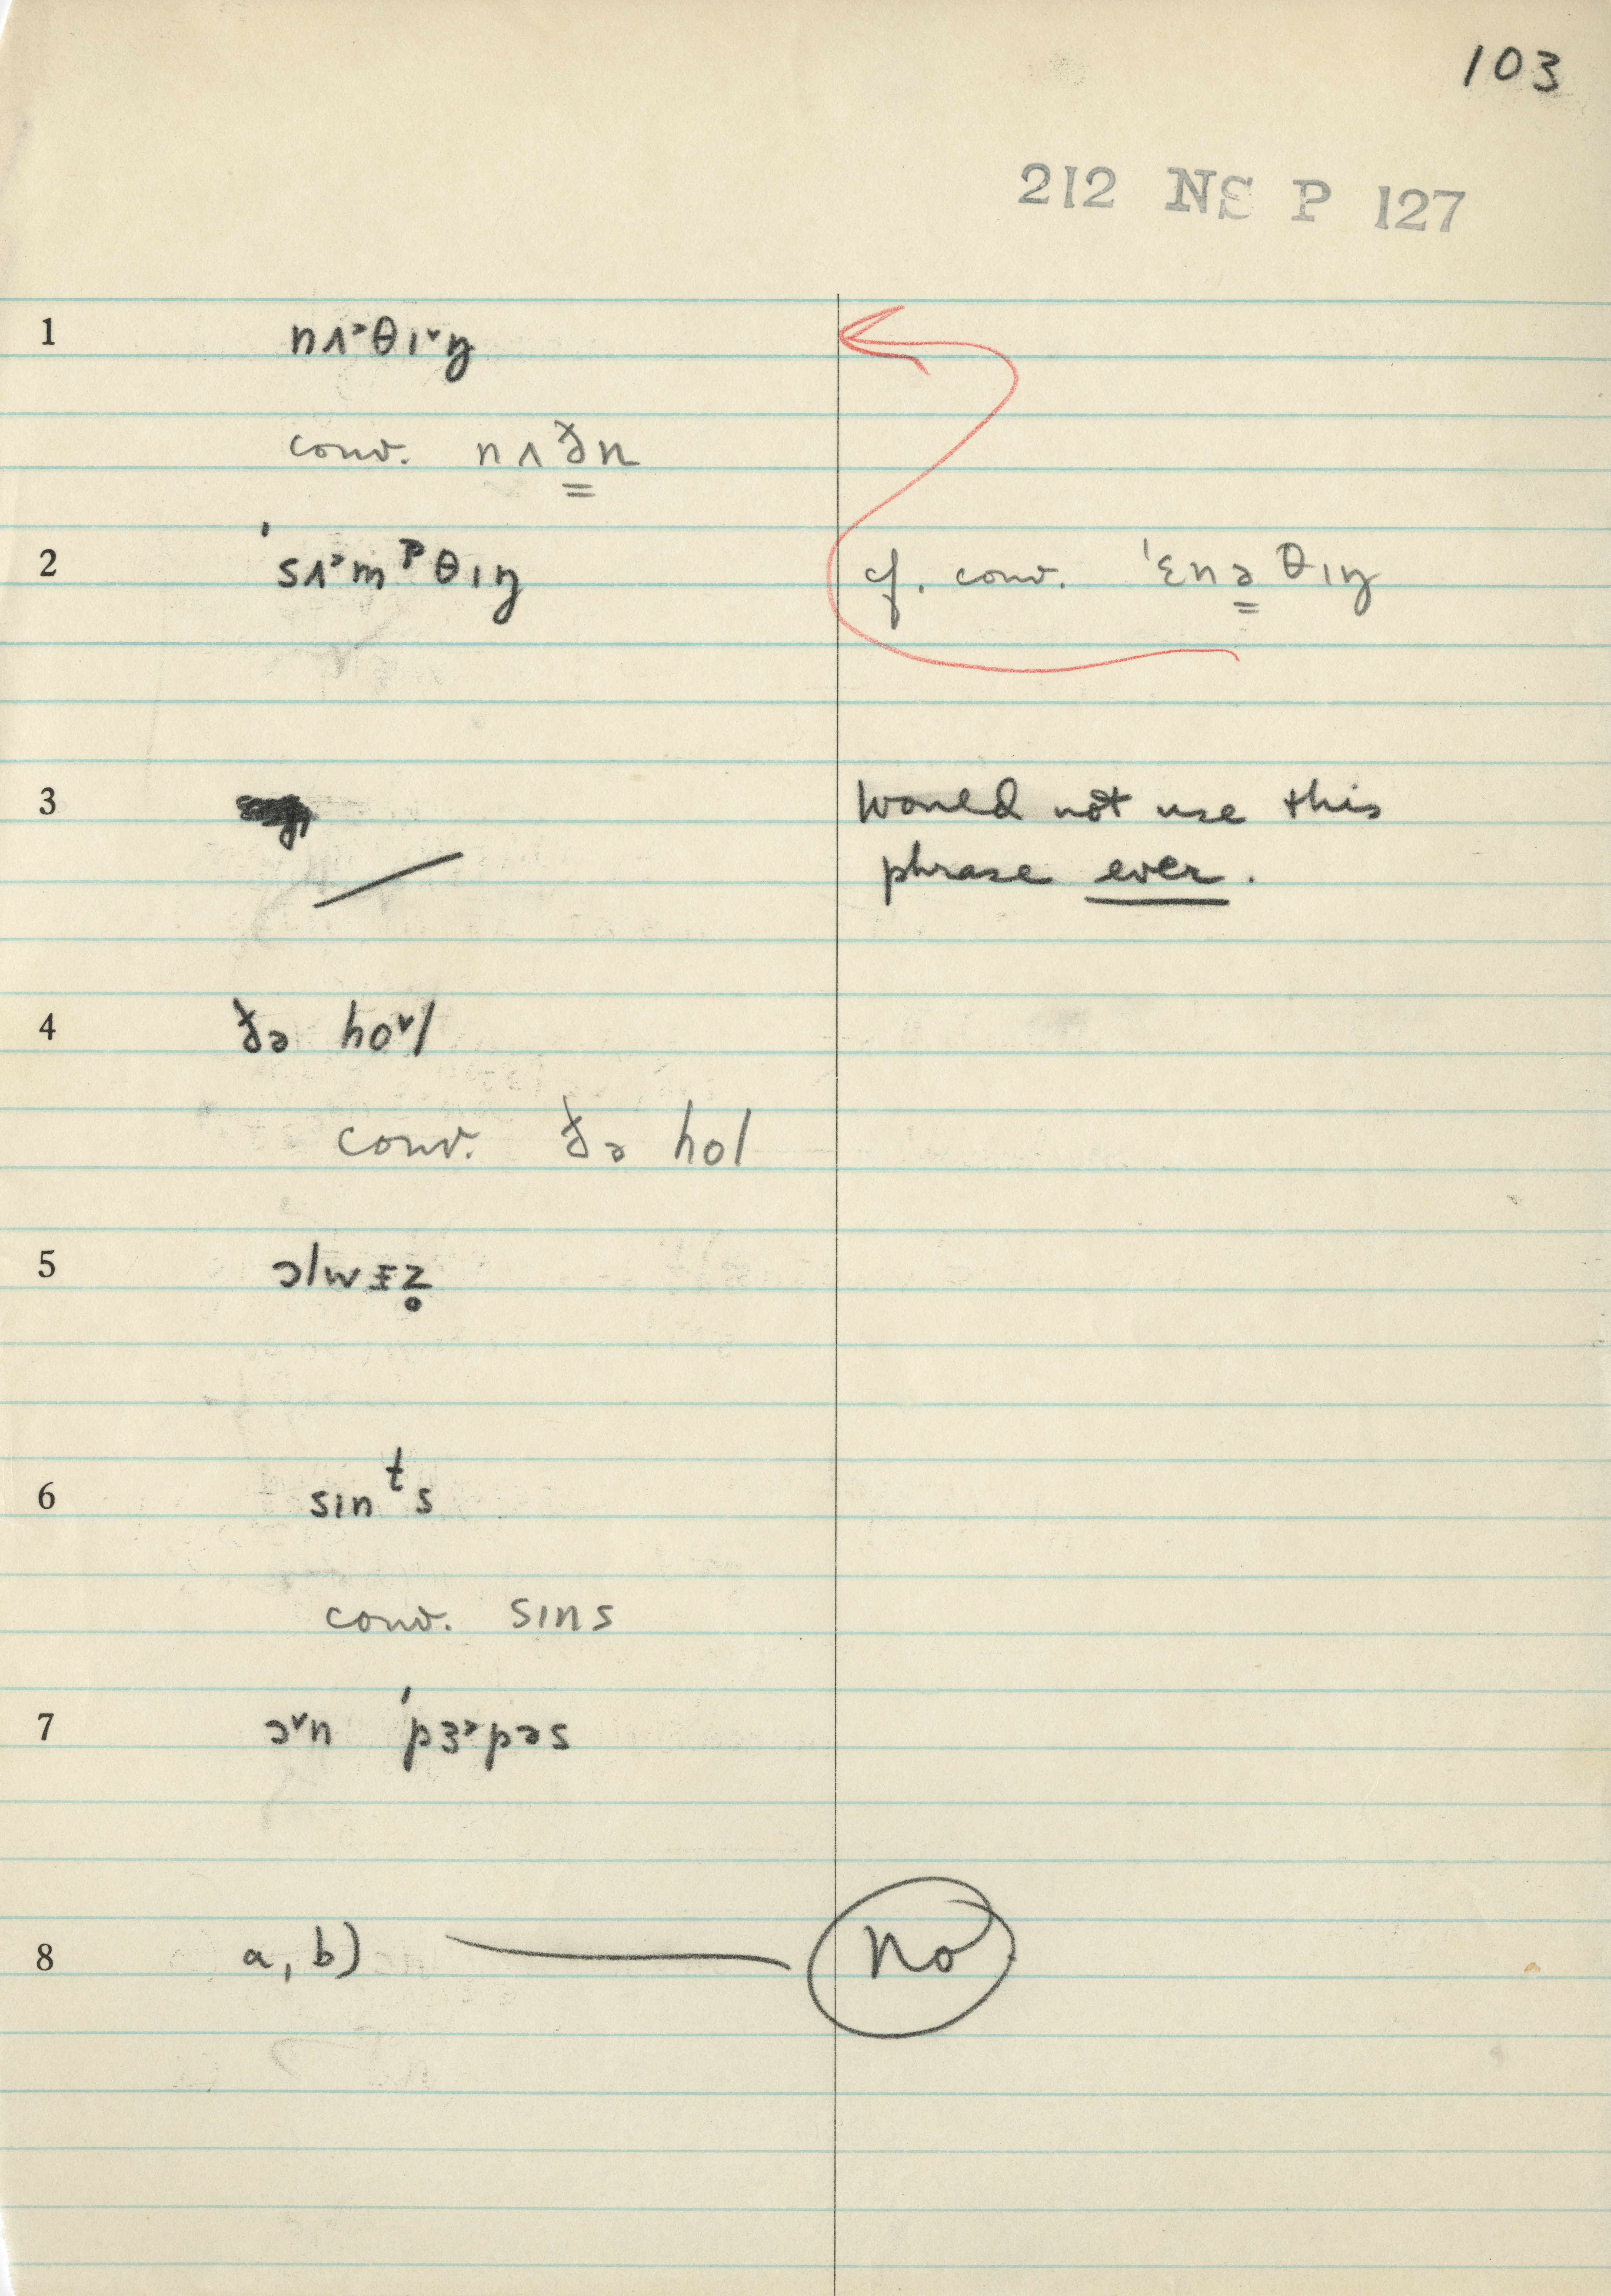 103
212 NS P 127
1 nʌ˃θɪ˅ŋ
conv. nʌðn
2 ˈsʌ˃mᵖθɪŋ cf. conv. ˈɛnəθɪŋ
3 Would not use this
phrase ever.
4 ðə ho˅l
conv. ðə hol
5 ɔlwɪz̥
6 sɪnᵗs
conv. sɪns
7 ɔ˅n ˈpɜ˃pəs
8 a, b) No